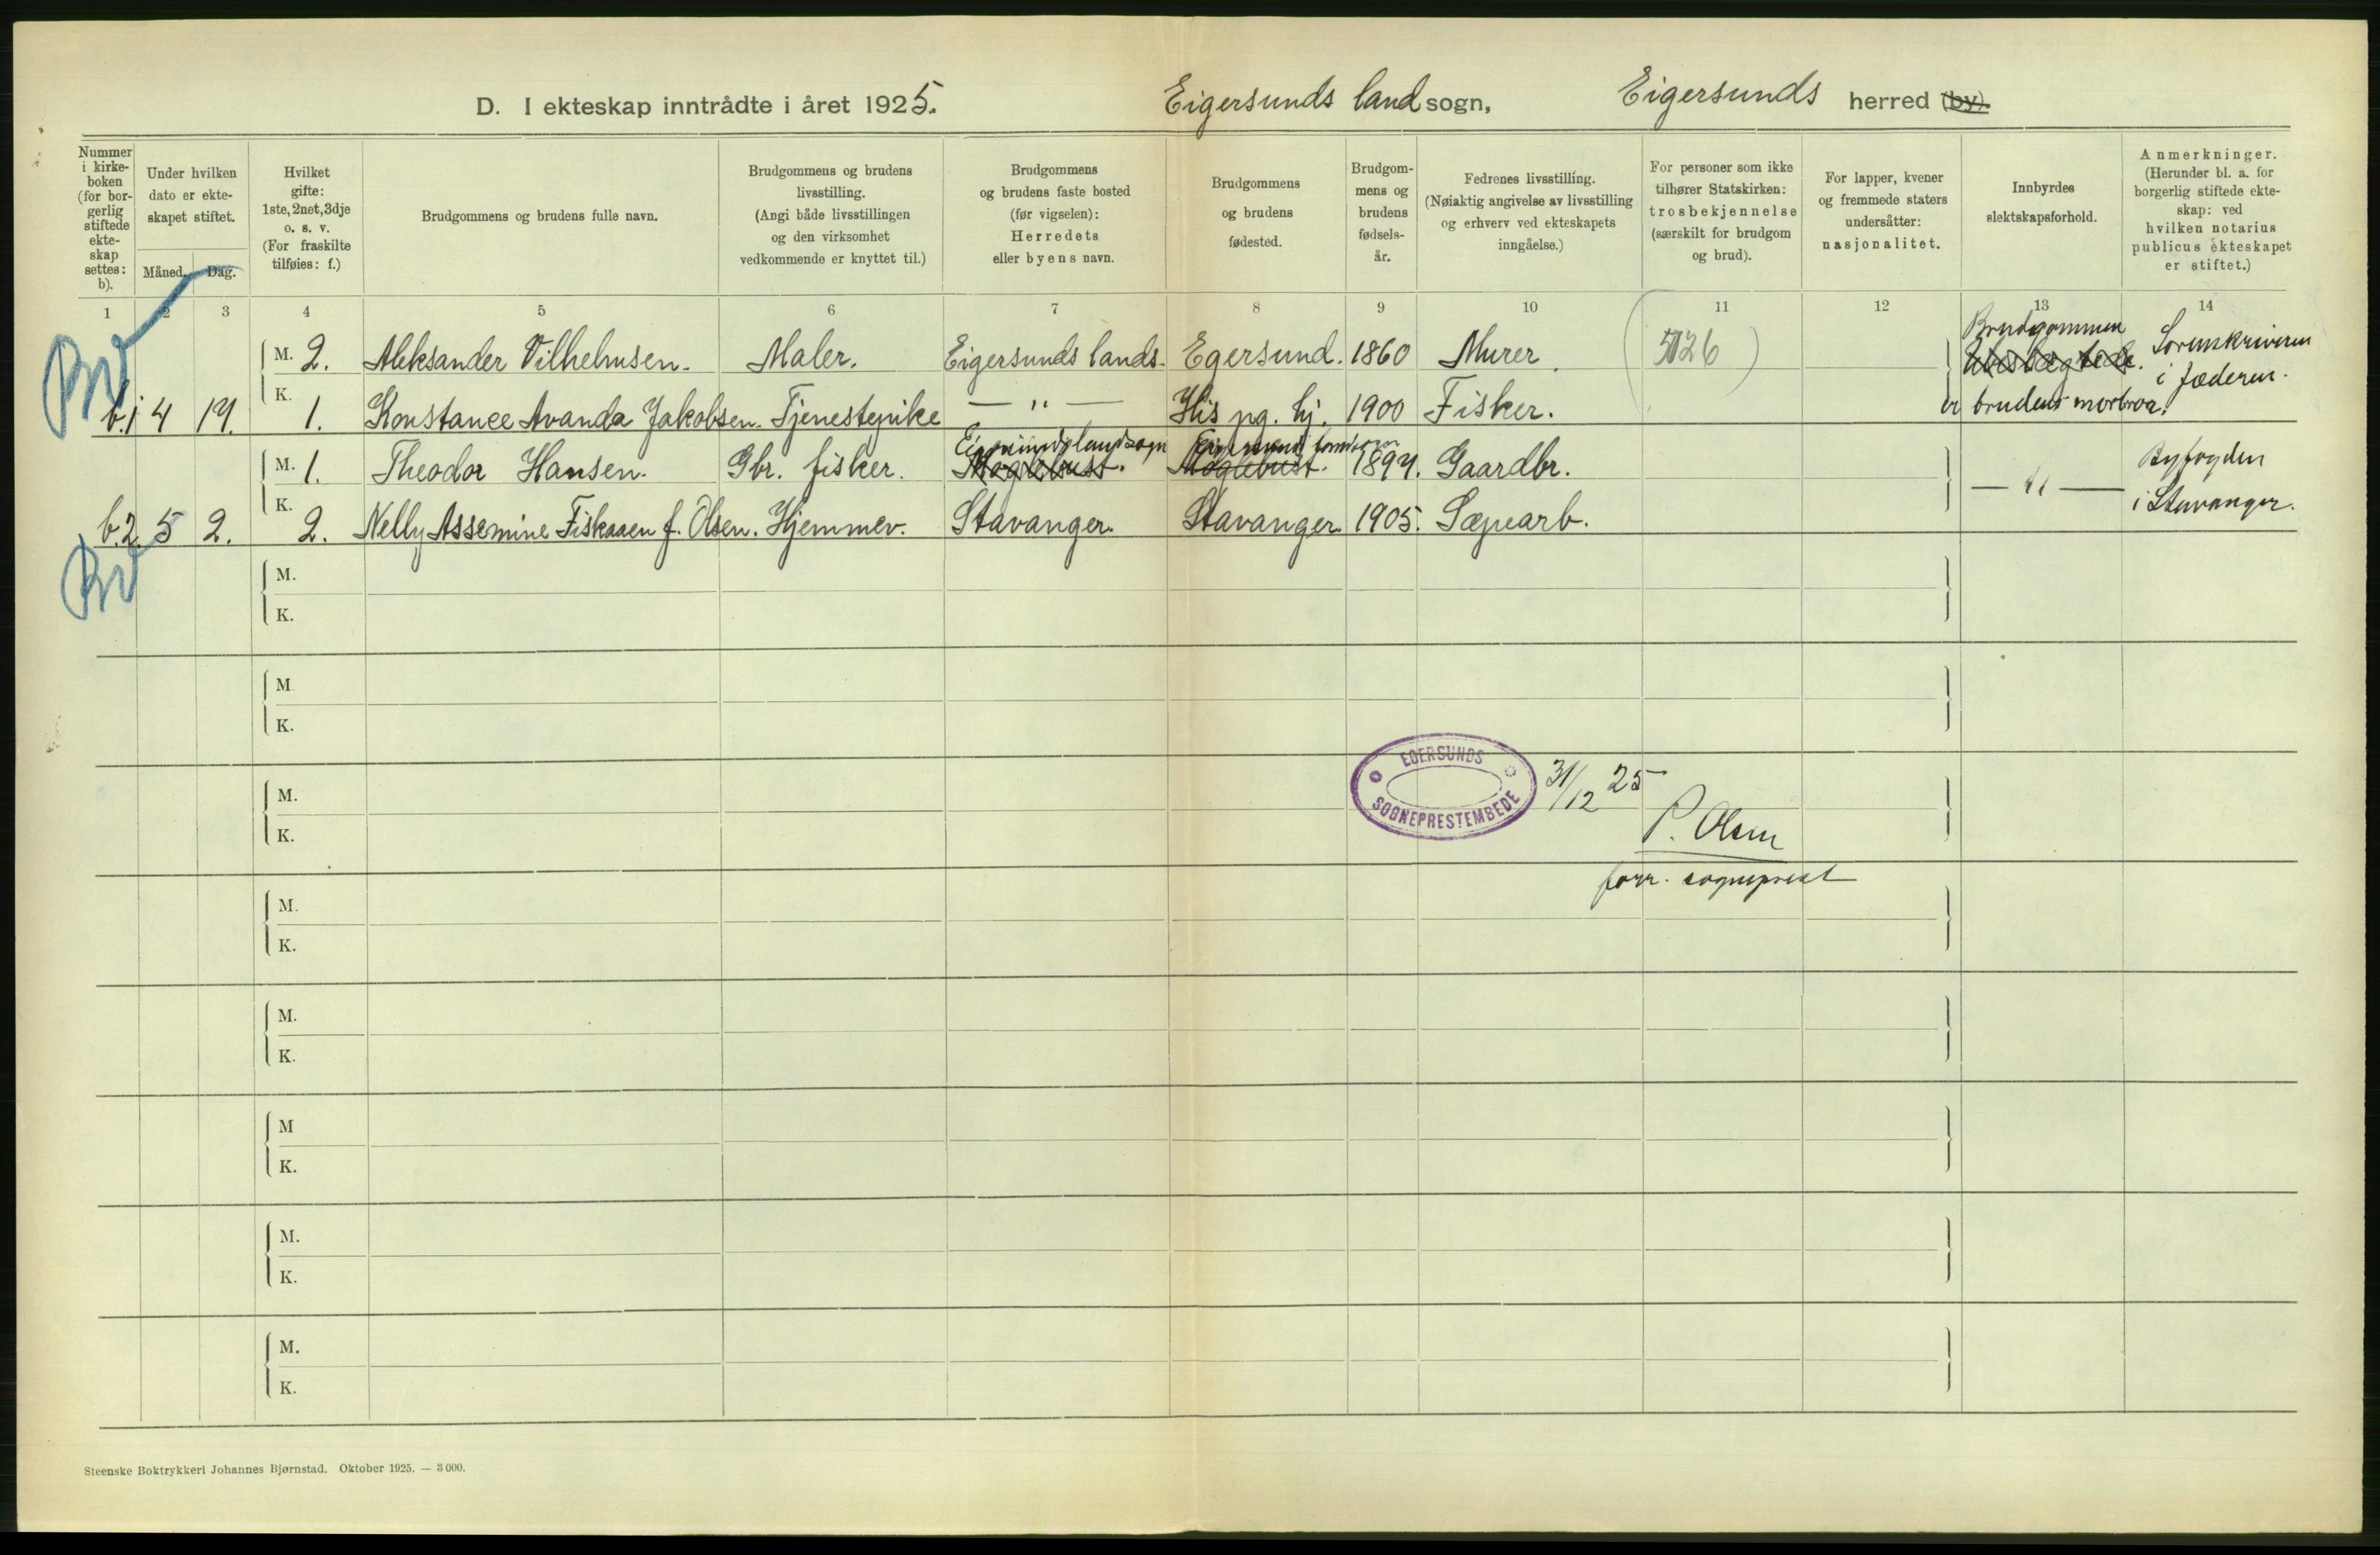 D. I ekteskap inntrådte i året 1925. Eigersunds land sogn, Eigersunds herred (by).
Nummer i kirke-boken (for bor-gerlig stiftede ekte-skap settes: b).
Under hvilken dato er ekte-skapet stiftet.
Måned. Dag.
Hvilket gifte: 1ste, 2net, 3dje o. s. v. (For fraskilte tilføies: f.)
Brudgommens og brudens fulle navn.
Brudgommens og brudens livsstilling. (Angi både livsstillingen og den virksomhet vedkommende er knyttet til.)
Brudgommens og brudens faste bosted (før vigselen): Herredets eller byens navn.
Brudgommens og brudens fødested.
Brudgom-mens og brudens fødsels-år.
Fedrenes livsstilling. (Nøiaktig angivelse av livsstilling og erhverv ved ekteskapets inngåelse.)
For personer som ikke tilhører Statskirken: trosbekjennelse (særskilt for brudgom og brud).
For lapper, kvener og fremmede staters undersåtter: nasjonalitet.
Innbyrdes slektskapsforhold.
Anmerkninger. (Herunder bl. a. for borgerlig stiftede ekte-skap: ved hvilken notarius publicus ekteskapet er stiftet.)
1 2 3 4 5 6 7 8 9 10 11 12 13 14
M. 2. Aleksander Vilhelmsen. Maler. Eigersunds lands. Egersund. 1860 Murer. Brudgommen Sorenskriveren
i Jæderen.
b.1 4 17. K. 1. Konstance Avanda Jakobsen. Tjenestepike — " — His pg. hj. 1900 Fisker. er brudens morbror.
Eigersunds landsogn Eigersunds landsogn
M. 1. Theodor Hansen. Gbr. fisker. Møglebust. Møglebust. 1897. Gaardbr. — " — Byfogden
b.2 5 2. K. 2. Nelly Assemine Fiskaaen f. Olsen. Hjemmev. Stavanger. Stavanger 1905. Sæpearb. i Stavanger.
M.
K.
M
K.
M.
K.
EGERSUNDS SOGNEPRESTEMBEDE 31/12 25
P. Olsen
forr. sogneprest
M.
K.
M.
K.
M
K.
M.
K.
M.
K.
Steenske Boktrykkeri Johannes Bjørnstad. Oktober 1925. — 3 000.